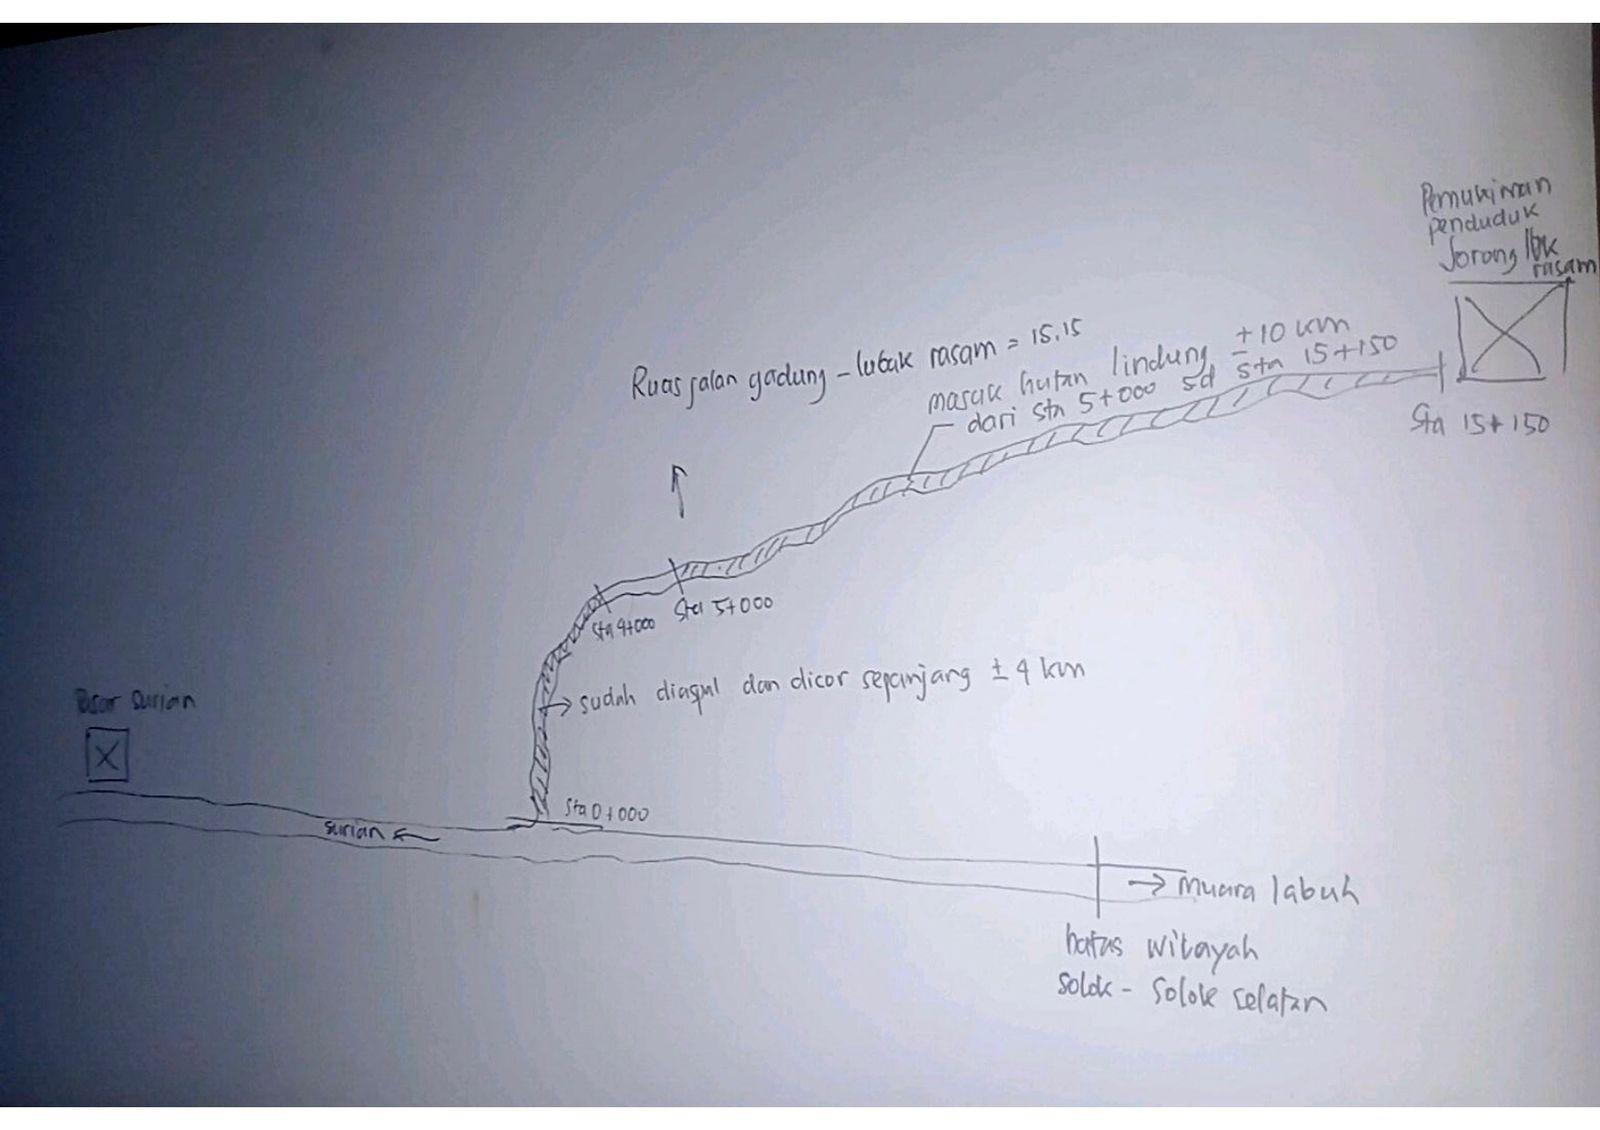 Pemukiman
penduduk
Jorong lbk
rasam
Ruas jalan gadung - lubuk rasam = 15.15
masuk hutan lindung ± 10 km
dari Sta 5+000 sd Sta 15+150
Sta 15+150
Sta 5+000
Sta 4+000
sudah diaspal dan dicor sepanjang ± 4 km
Pasar surian
Sta 0+000
surian
muara labuh
batas wilayah
solok - solok selatan